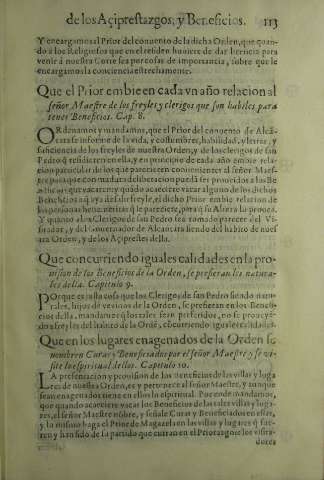 de los Açiprestazgos, y Beneficios. 113
Y encargamos al Prior del conuento de la dicha Orden, que quan-
do a los Religiosos que en el residen huuiere de dar licencia para
venir a nuestra Corte sea por cosas de importancia, sobre que le
encargamos la conciencia estrechamente.
Que el Prior embie en cada vn año relacion al
señor Maestre de los freyles y clerigos que son habiles para
tener Beneficios. Cap. 8.
ORdenamos y mandamos, que el Prior del conuento de Alcã-
tara se informe de la vida, y costumbres, habilidad, y letras, y
suficiencia de los freyles de nuestra Orden, y de los clerigos de san
Pedro q̃ residieren en ella, y en principio de cada año embie rela-
cion particular de los que pareciere conuenientes al señor Maes-
tre para que con madura deliberacion pueda ser proueidos a los Be-
neficios que vacaren y quãdo acaeciere vacar alguno de los dichos
Beneficios
Y quanto a los Clerigos de san Pedro sea tomado parecer del Vi-
sitador, y del Gouernador de Alcantara siendo del habito de nues-
tra Orden, y de los Açiprestes della.
Que concurriendo iguales calidades en la pro-
uision de los Beneficios de la Orden, se prefieran los natura-
les della. Capitulo 9.
POrque es justa cosa que los Clerigos de san Pedro siendo natu-
rales, hijos de vezinos de la Orden, se prefieran en los Benefi-
cios della, mandamos q̃ los tales sean preferidos, no se proueyẽ-
do a freyles del habito de la Ordẽ, cõcurriendo iguales calidades.
Que en los lugares enagenados de la Orden se
nombren Curas y Beneficiados por el señor Maestre y se vi-
site lo espiritual dellos. Capitulo 10.
LA presentacion y prouision de los Beneficios de las villas y luga-
res de nuestra Orden, es y pertenece al señor Maestre, y aunque
sean enagenados tiene en ellos lo espiritual. Por ende mandamos,
que quando acaeciere vacar los Beneficios de las tales villas y luga-
res, el señor Maestre nõbre, y señale Curas y Beneficiados en ellas,
y lo mismo haga el Prior de Magazela en las villas y lugares q̃ fue-
ren y han sido de la partido que entran en el Priorazgo e los visita-
dores